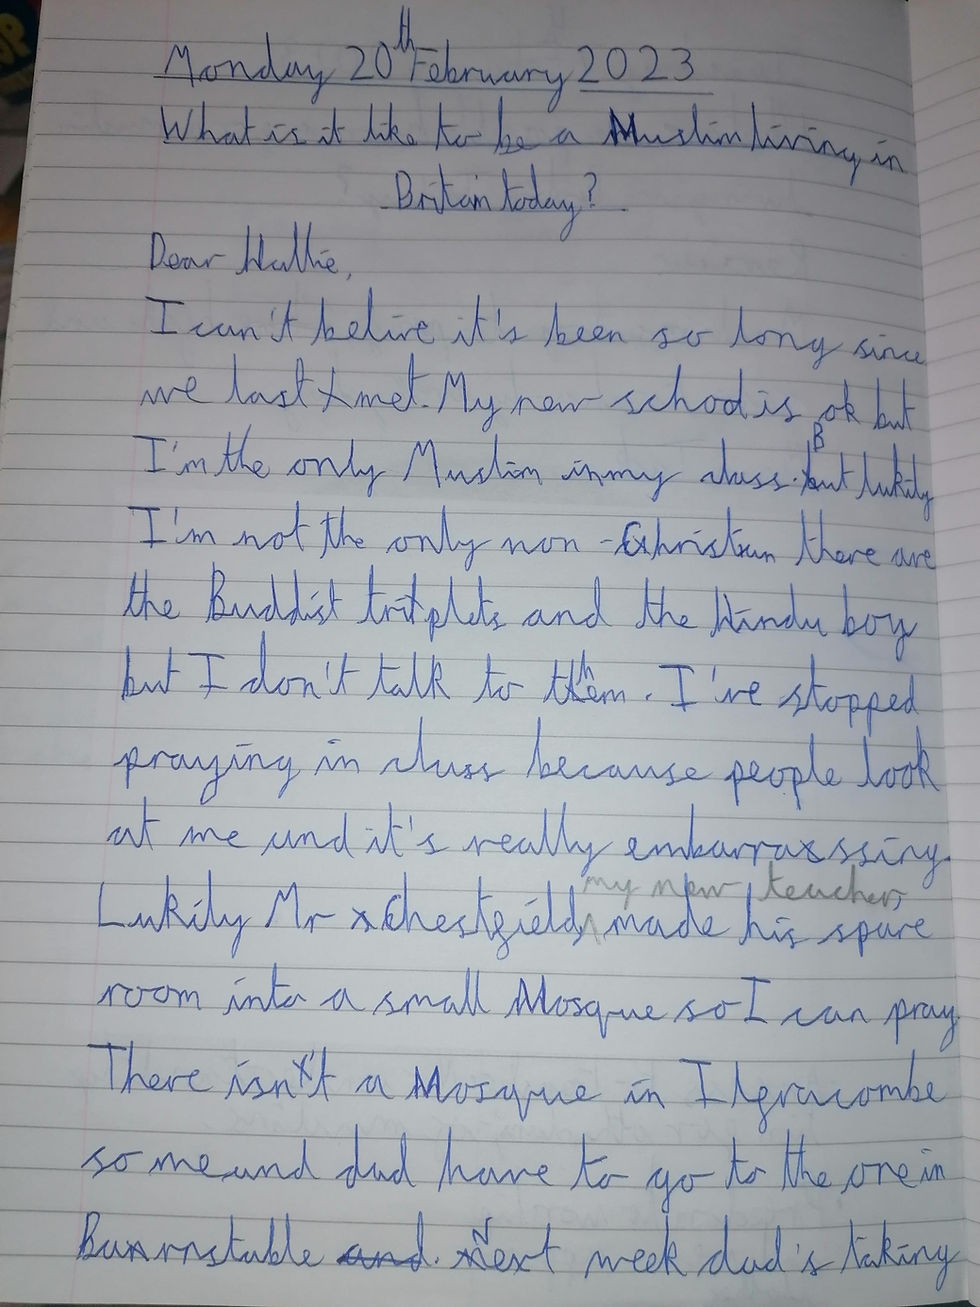 Monday 20th February 2023
What is it like to be a Muslim living in
Britain today?
Dear Hallie,
I can't belive it's been so long since
we last met. My new school is ok but
I'm the only Muslim in my class. But lukily
I'm not the only non-Christian there are
the Buddist triplets and the Hindu boy
but I don't talk to them. I've stopped
praying in class because people look
at me and it's really embarrassing.
my new teacher,
Lukily Mr Chestfield, made his spare
room into a small Mosque so I can pray.
There isn't a Mosque in Ilfracombe
so me and dad have to go to the one in
Barnstable and. Next week dad's taking